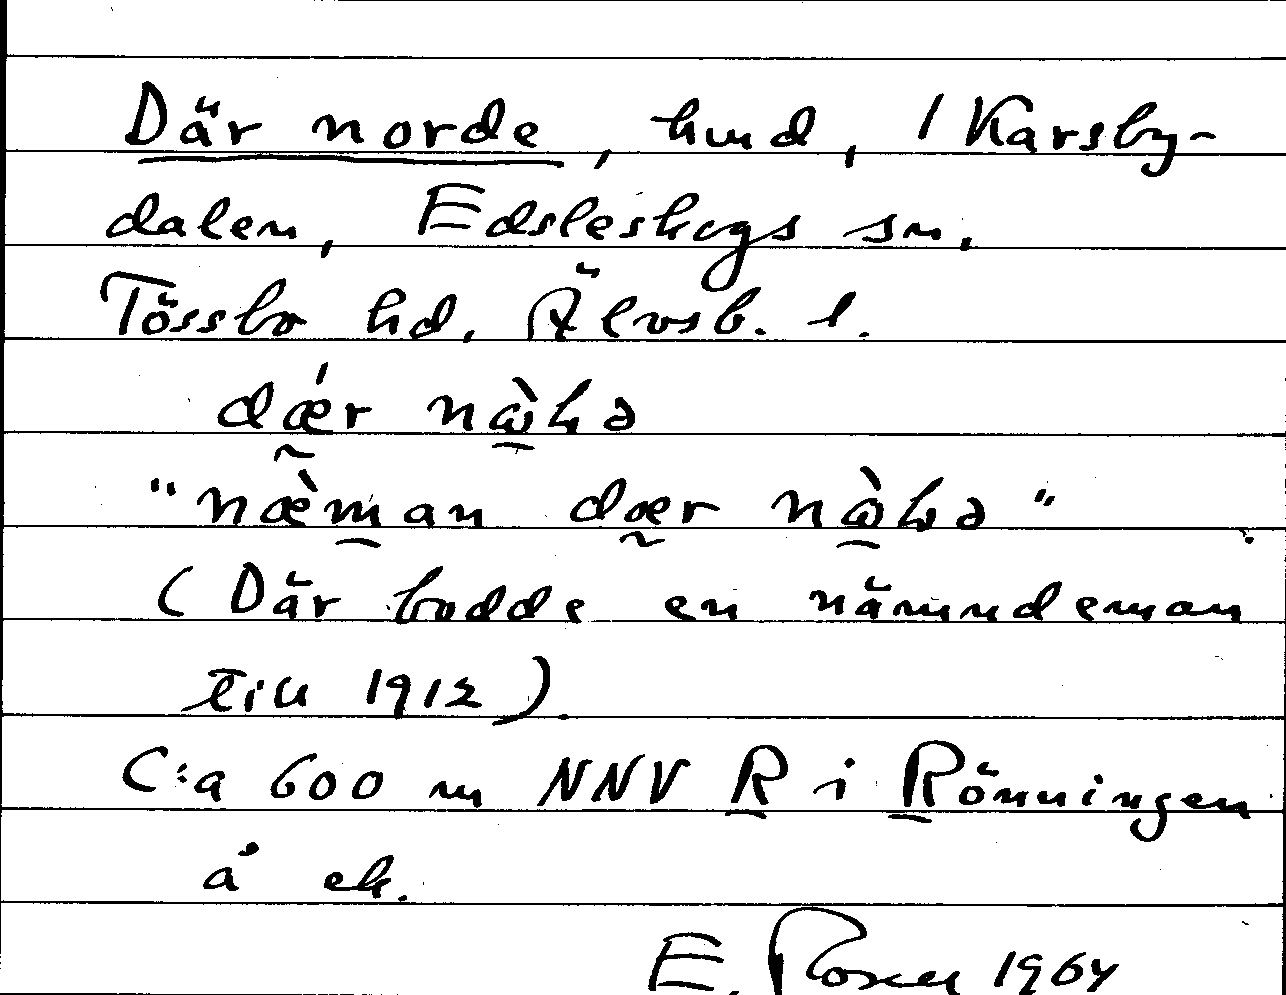 Där norde, hmd, / Karsby-
dalen, Edsleskogs sn,
Tössbo hd, Älvsb. l.
dǽr
"næ̀man dær
(Där bodde en nämndeman
till 1912).
C:a 600 m NNV R i Rönningen
å ek.
E. 1964